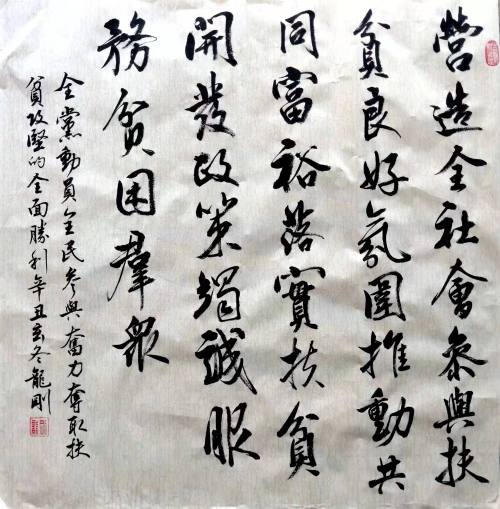 營造全社會參與扶
貧良好氛圍推動共
同富裕落實扶貧
開發政策竭誠服
務貧困羣眾
全黨動員全民參與奮力奪取扶
貧攻堅的全面勝利辛丑立冬龍剛